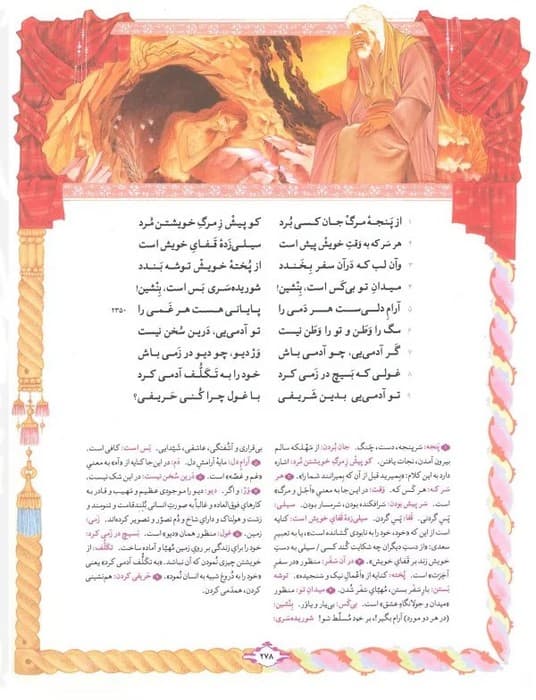 ۱ از پَنجهٔ مرگْ جان کسی بُرد کو پیشْ زِ مرگِ خویشتن مُرد
۲ هر سَر که به وَقتِ خویشْ پیش است سیلی‌زَدهٔ قَفایِ خویش است
۳ وآن لب که دَرآن سفر بِخَندد از پُختهٔ خویشْ توشه بَندد
۴ میدانِ تو بی‌کَس است، بِنْشین! شوریده‌سَری بَس است، بِنْشین!
۵ آرامِ دلی‌ست هر دَمی را پایانی هست هر غَمی را ۲۳۵۰
۶ سگ را وَطَن و تو را وَطَن نیست تو آدمی‌یی، دَرین سُخن نیست
۷ گَر آدمی‌یی، چو آدمی باش وَرْ دیو، چو دیو در زَمی باش
۸ غولی که بَسیچ در زَمی کرد خود را به تَکَلُّف آدمی کرد
۹ تو آدمی‌یی بدین شَریفی با غول چرا کُنی حَریفی؟
۱ پَنجه: سَرپنجه، دست، چنگ. جان بُردن: از مَهلکه سالم
بیرون آمدن، نجات یافتن. کو پیش زِ مرگِ خویشتن مُرد: اشاره
دارد به این کلام: «بِمیرید قبل از آن که بِمیرانند شما را». ۲ هر
سَر که: هر کَس که. وَقت: در این‌جا به معنیِ «اَجَل و مرگ»
است. سَر پیش بودن: سَرافکنده بودن، شرمسار بودن. سیلی:
پَس گردنی. قَفا: پَسِ گردن. سیلی‌زَدهٔ قَفایِ خویش است: کنایه
است از این که «خود، خود را به نابودی کَشانده است»، یا به تعبیرِ
سعدی: «از دستِ دیگران چه شکایت کُند کَسی / سیلی به دستِ
خویش زَند بر قَفایِ خویش». ۳ در آن سَفَر: منظور «در سفرِ
آخِرَت» است. پُخته: کنایه از «اَعمالِ نیک و سَنجیده». توشه
بَستن: بارِ سَفَر بستن، مُهیّایِ سَفَر شُدن. ۴ میدانِ تو: منظور
«میدان و جولانگاهِ عشق» است. بی‌کَس: بی‌یار و یاوَر. بِنْشین:
(در هر دو مورد) آرام بگیر!، بر خود مُسلّط شو! شوریده‌سَری:
بی‌قراری و آشُفتگی، عاشقی، شَیْدایی. بَس است: کافی است.
۵ آرامِ دل: مایهٔ آرامشِ دل. دَم: در این‌جا کنایه از «آه» به معنیِ
«غم و غصّه» است. ۶ دَرین سُخن نیست: در این شک نیست.
۷ وَرْ: و اگر. دیو: دیو را موجودی عظیم و مَهیب و قادر به
کارهای فوق‌العاده و غالباً به صورتِ انسانی بُلندقامت و تنومند و
زشت و هولناک و دارایِ شاخ و دُم تصوّر و تصویر کرده‌اند. زَمی:
زمین. ۸ غول: منظور همان «دیو» است. بَسیچ در زَمی کرد:
خود را برای زندگی بر رویِ زمین مُهیّا و آماده ساخت. تَکَلُّف: از
خویشتن چیزی نمودن که آن نباشد. «به تَکَلُّف آدمی کرد» یعنی
«خود را به دُروغ شبیه به انسان نُمود». ۹ حَریفی کردن: هم‌نشینی
کردن، همدَمی کردن.
۲۷۸